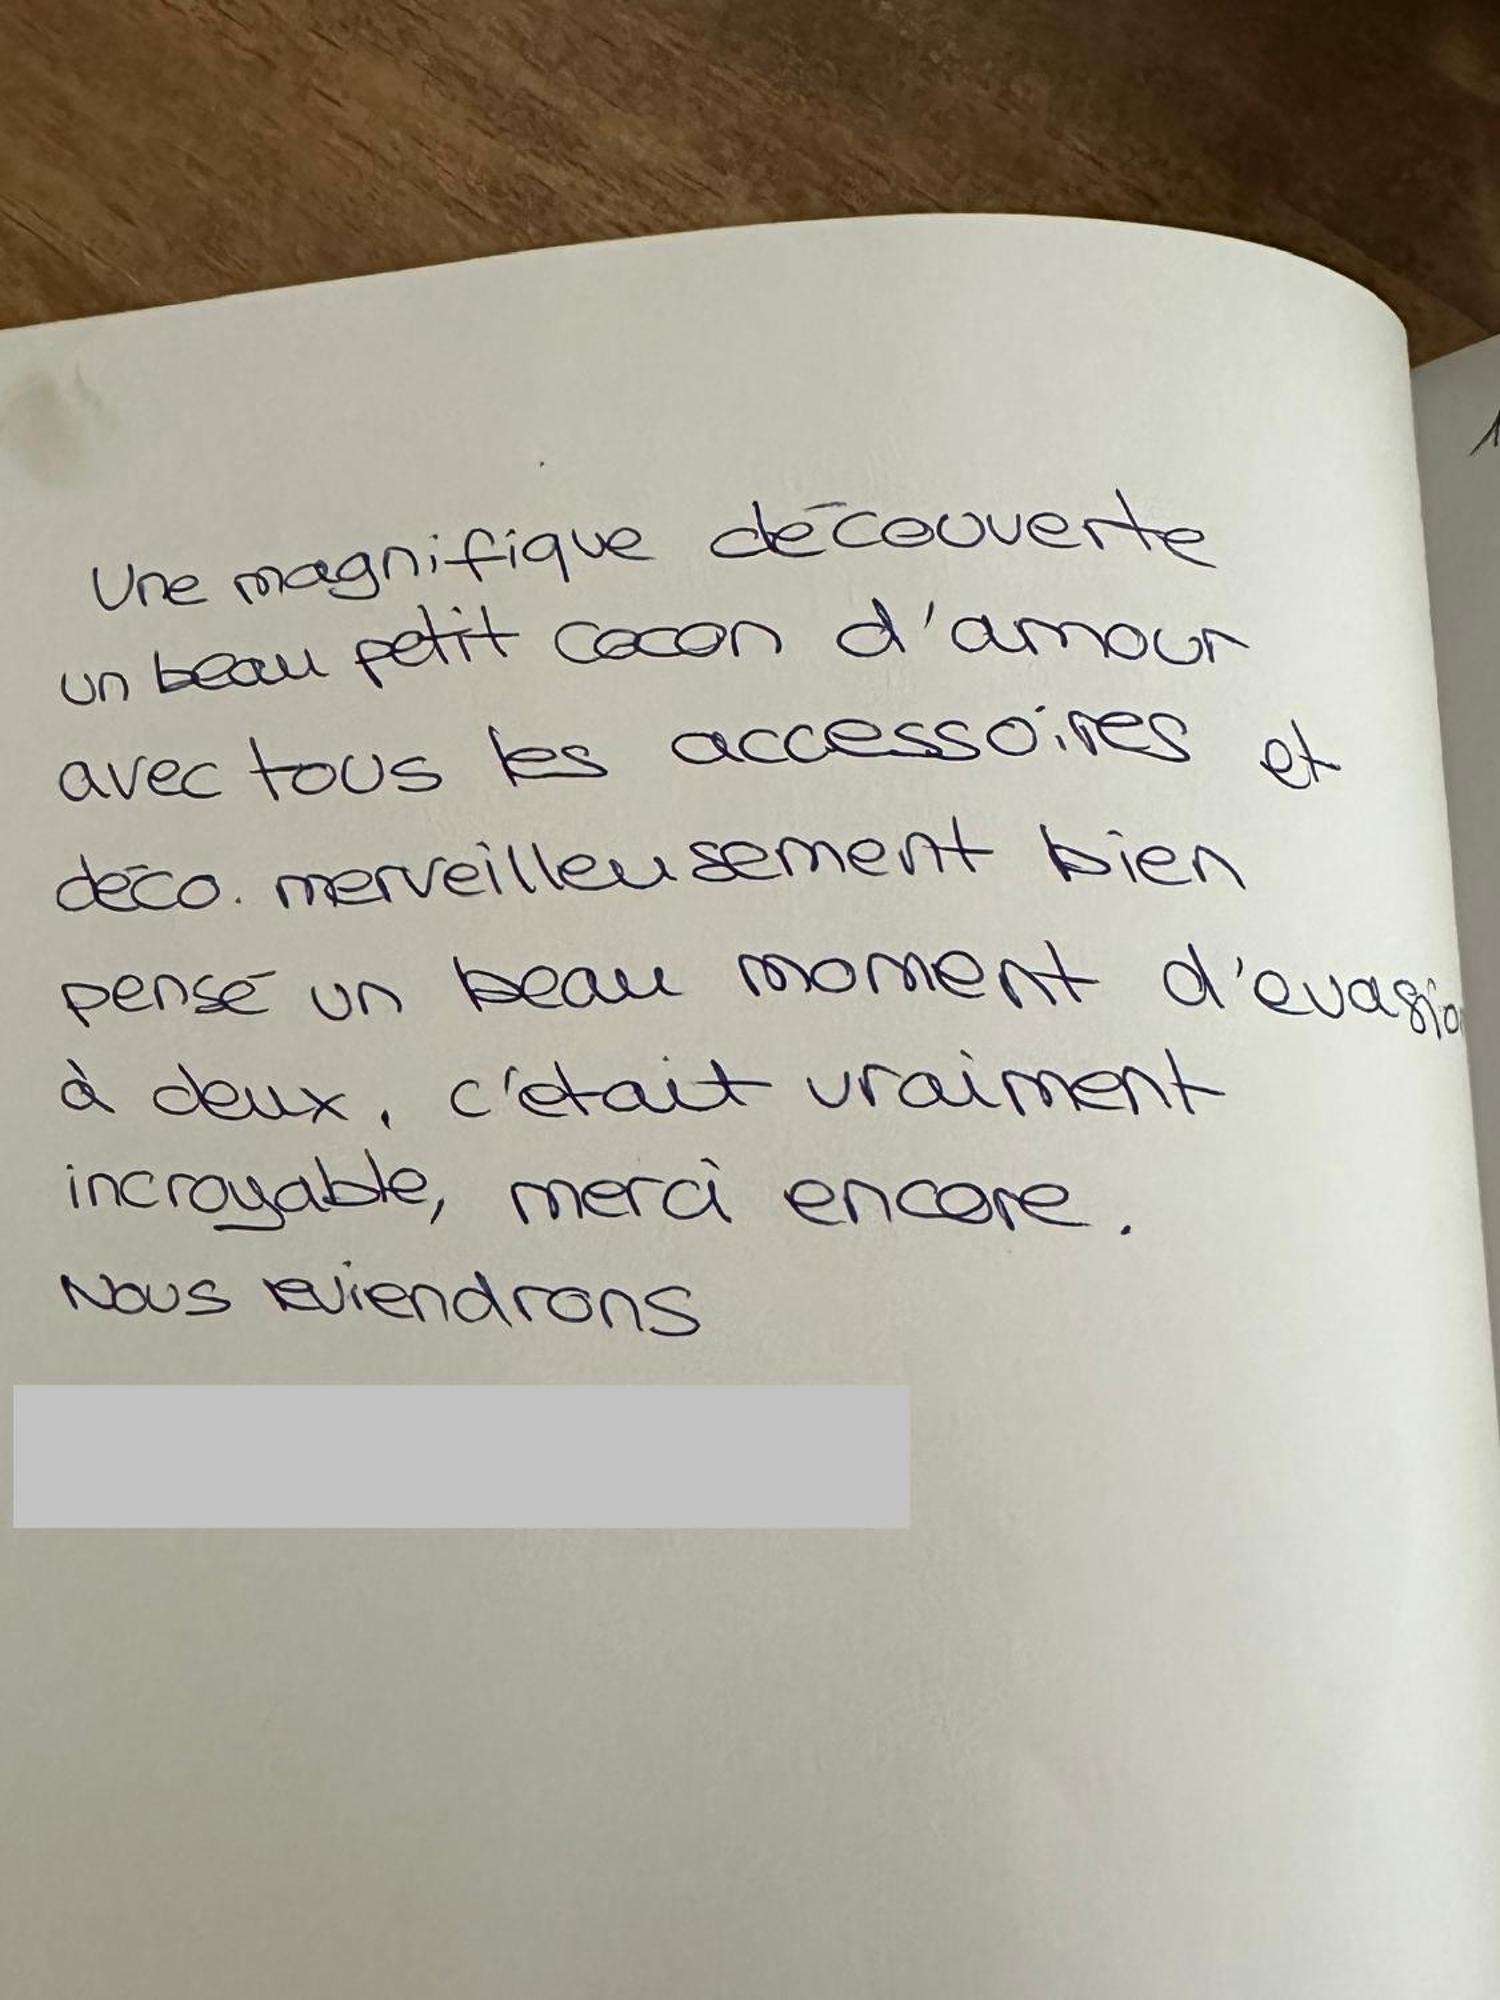 Une magnifique découverte
un beau petit cocon d'amour
avec tous les accessoires et
déco. merveilleusement bien
pensé un beau moment d'evasion
à deux, c'était vraiment
incroyable, merci encore.
Nous reviendrons